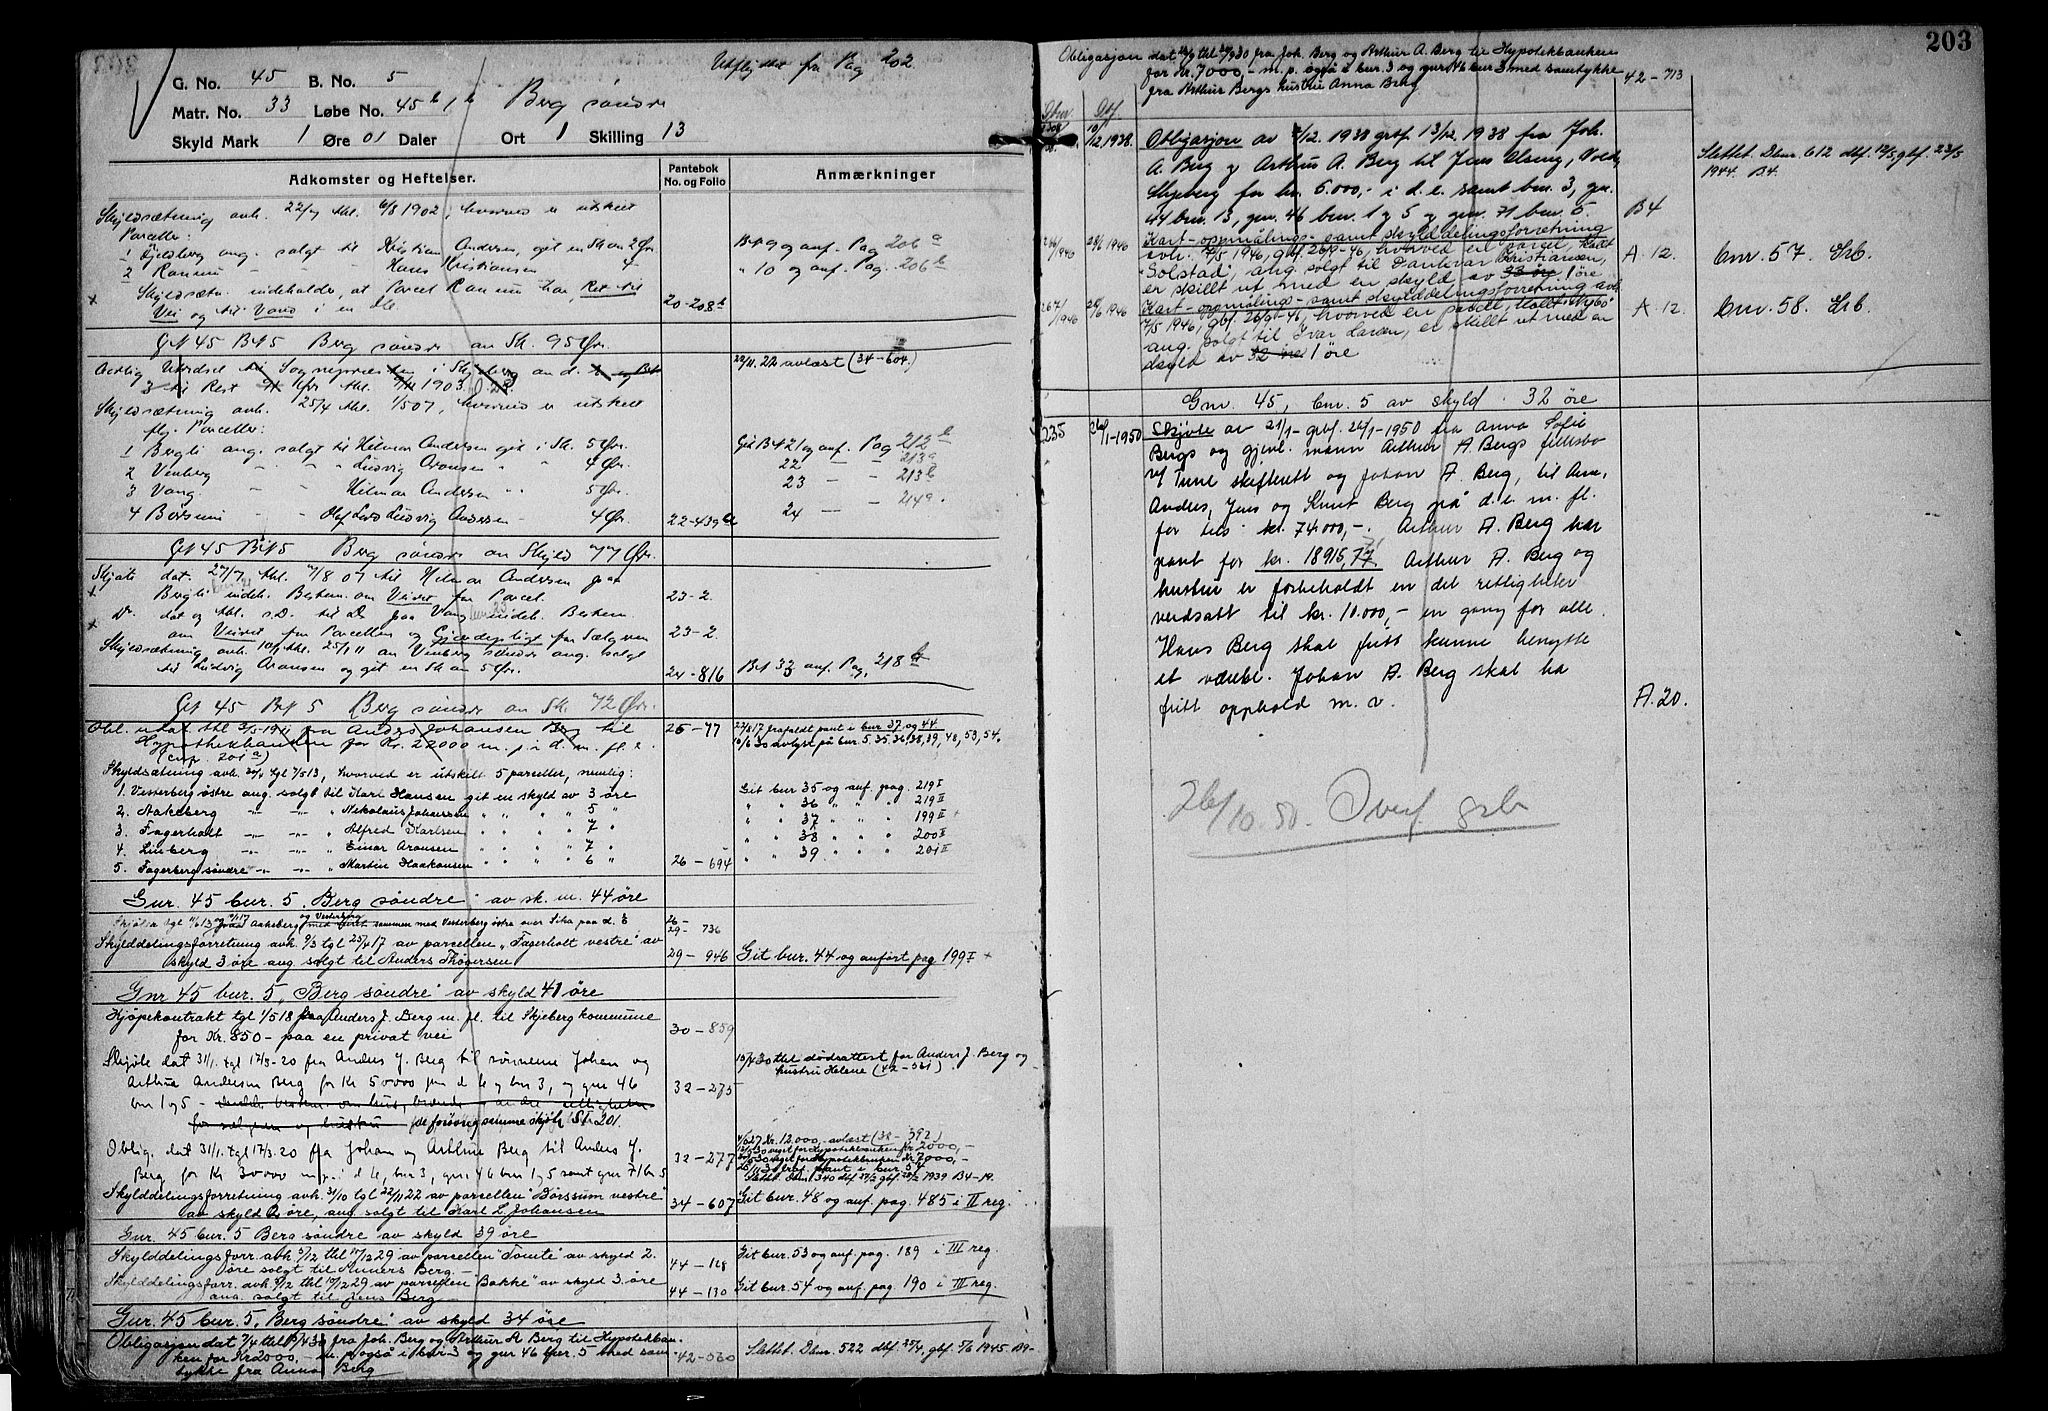 Utflyttet fra Pag 202
G. No. 45 B. No. 5
Matr. No. 33 Løbe No. 45 b 1 b Berg søndre
Skyld Mark 1 Øre 01 Daler Ort 1 Skilling 13
Adkomster og Heftelser. Pantebok No. og Folio Anmærkninger
Skyldsætning avh. 22/7 thl. 6/8 1902, hvorved er utskilt
Parceller:
1 Fjeldberg ang. solgt til Kristian Andersen, git en Sk av 2 Ør. Bt 9 og anf. Pag 206 a
2 Rannum - - - Hans Kristiansen - 4 - " 10 og anf. Pag. 206 b
x Skyldsætn. indeholder, at Parcel Rannum har Ret til
Vei og til Vand i en 20-208 b
Gt 45 Bt 5 Berg søndre av Sk. 95 Ør.
Aarlig til Sognepræsten i Skjeberg an d. 22/11 22 avlæst (34-604)
3 til Rest thl. 1903.
Skyldsætning avh. 25/4 thl. 1/5 07, hvorved er utskilt
flg. Parceller:
1 Bergli ang. solgt til Hilmar Andersen git i Sk. 5 Ør. Git Bt 21 og anf. Pag 212 b
2 Venberg - - " Ludvig Aronsen " " 4 Ør. 22 - - 213 a
3 Vang - - Hilmar Andersen " " 5 Ør. 23 - - 213 b
4 Børsum - - Olaf Ludvig Andersen - 4 Ør. 22-439 24 - - 214 a.
Gt 45 Bt 5 Berg søndre av Skyld 77 Ør.
Skjøte dat. 27/7 thl. 7/8 07 til Hilmar Andersen paa
x Bergli indeh. Bestem. om Veiret for Parcel. 23-2.
Do. dat og thl. s.D. til Do paa Vang bnr 23 indeh. Bestem
x om Veiret for Parcellen og Gjærdepligt for Sælgeren 23-2.
Skyldsætning avh. 10/1 thl. 25/1 11 av Venberg søndre ang. solgt
til Ludvig Aronsen og git en Sk av 5 Ør. 24-816 Bt 33 anf. Pag. 218 b
Gt 45 Bt 5 Berg søndre av Sk. 72 Ør.
Obl. udat. thl 3/5-1911 fra Anders Johansen Berg til 25-77 22/8 17 frafaldt pant i bnr 37 og 44
Hypothekbanken for Kr. 22000 m. p. i d. m. fl. e. 10/6 30 avlyst på bnr. 5, 35, 36, 38, 39, 48, 53, 54.
(cnfr. 201 a)
Skyldsætning avh. 30/4 tgl 7/5 13, hvorved er utskilt 5 parceller, nemlig:
1. Vesterberg østre ang. solgt til Karl Hansen git en skyld av 3 øre Git bnr 35 og anf. pag. 219 I
2. Aakeberg -"- -"- " Nikolaus Johansen " " " " 5 " " " 36 " " " 219 II
3. Fagerholt -"- -"- " Alfred Karlsen " " " " 7 " " " 37 " " " 199 II
4. Linberg -"- -"- " Einar Aronsen " " " " 7 " " " 38 " " " 200 II
5. Fagerberg søndre -"- -"- " Martin Haakonsen " " " " 6 " 26-694 " " 39 " " " 201 II
Gnr. 45 bnr. 5, Berg søndre" av sk. m. 44 øre
Skjøter tgl 11/6 13 og 7/4 17 Aakeberg og Vesterberg sammen med Vesterberg østre over Sika paa d. E 26- 29-736
Skylddelingsforretning avh. 9/3 tgl 25/4 17 av parcellen „Fagerholt vestre" av
skyld 3 øre ang solgt til Anders Thøgersen 29-946 Git bnr. 44 og anført pag 199 I +
Gnr 45 bnr. 5, „Berg søndre" av skyld 41 øre
Kjøpekontrakt tgl 1/5 18 fra Anders J. Berg m. fl. til Skjeberg kommune
for Kr. 850 - paa en privat vei 30-859
Skjøte dat 31/1. tgl 17/3-20 fra Anders J. Berg til sønnerne Johan og 10/4 30 thl dødsattest for Anders J. Berg og
Arthur Andersen Berg for Kr 50000 paa d. e. og bnr 3, og gnr 46 32-275 hustru Helene (42-561).
bnr 1 og 5 - derunder bestem. om hus, brænde og andre rettigheter
for sælgeren og hustru (de forøvrig samme skjøte) S. 201.
Oblig. dat 31/1. tgl 17/3.20 fra Johan og Arthur Berg til Anders J. 32-277 4/6 27 Kr. 12.000,- avlæst (38-392)
Berg for Kr 30000 m.p. i d. e, bnr 3, gnr 46 bnr 1 og 5 samt gnr 71 b 5 veget for Hypotekbanken Kr 2000,-
veget for Hypotekbanken Kr 7000,-
25/11 30 fraf. pant i bnr. 54
Slettet Dbnr. 340 dbf 27/2 gbf 28/2 1939 B4-19.
Skylddelingsforretning avh. 31/10 tgl 22/11 22 av parcellen "Børssum vestre"
av skyld 2 øre, ang. solgt til Karl L. Johansen 34-607 Git bnr. 48 og anf. pag. 485 i II reg.
Gnr. 45 bnr. 5 Berg søndre av skyld 39 øre
Skylddelingsforr. avh 9/12 thl 17/12 29 av parcellen "Tomte" av skyld 2
øre solgt til Anners Berg. - 44-128 Git bnr. 53 og anf. pag. 189 i III reg.
Skylddelingsforr. avh. 9/12 thl 17/12 29 av parcellen "Bakke" av skyld 3. øre
ang. solgt til Jens Berg 44-130 Git bnr. 54 og anf. pag. 190 i III reg.
Gnr. 45 bnr. 5, Berg søndre" av skyld 34 øre
Obligasjon dat 7/4 thl 10/4 30 fra Joh. Berg og Arthur A Berg til Hypotekban-
ken for Kr 2000,- m. p. også i bnr 3 og gnr 46 bnr. 5 med sam- 42-560 Slettet. Dbnr. 522 dbf. 25/4, gbf. 5/6 1945. B9-
tykke fra Anna Berg
203
Obligasjon dat 12/9 thl 20/9 30 fra Joh. Berg og Arthur A. Berg til Hypotekbanken
for Kr. 7000,- m. p. også i bnr. 3 og gnr 46 bnr 3 med samtykke 42-713
fra Arthur Bergs hustru Anna Berg
Dbnr Gbf.
1308 10/12 1938. Obligasjon av 7/12. 1938 grbf. 13/12. 1938 fra Joh.
A. Berg og Arthur A. Berg til Jens Olseng, Vold, Slettet. Dbnr. 612 dbf. 12/5, gbf. 23/5
Skjeberg for kr. 5.000,- i d. e. samt bnr. 3, gnr. 1944. B4.
44 bnr. 13, gnr. 46 bnr. 1 og 5 og gnr. 71 bnr. 5. B4
266/1946 28/6 1946 Kart- oppmålings- samt skylddelingsforretning
avh. 7/5 1946, gbf. 26/6-46, hvorved en parcel, kaldt A. 12. bnr. 57. Grb.
"Solstad", ang. solgt til Dankvar Kristiansen,
er skillt ut med en skyld av 33 øre 1 øre
267/1946 28/6 1946 Kart- oppmålings- samt skylddelingsforretning avh.
7/5 1946, gbf. 26/6-46, hvorved en parcel, kaldt "Nybo" A. 12. bnr. 58. Grb.
ang. solgt til Ivar Larsen, er skillt ut med en
skyld av 32 øre 1 øre
Gnr. 45, bnr. 5 av skyld 32 øre
235 26/1-1950 Skjøte av 21/1- grbf. 26/1-1950 fra Anna Sofie
Bergs og gjenl. mann Arthur A Bergs fellesbo
v/ Tune skifterett og Johan A. Berg, til Arne,
Anders, Jens og Knut Berg på d. e. m. fl.
for tils. kr. 74.000,-. Arthur A. Berg har
pant for kr. 18915,77 Arthur A. Berg og
hustru er forbeholdt en del rettigheter
verdsatt til kr. 10.000,- en gang for alle.
Hans Berg skal fritt kunne benytte
et værelse. Johan A. Berg skal ha
fritt opphold m. v. A. 20.
26/10.50. Overf. grb